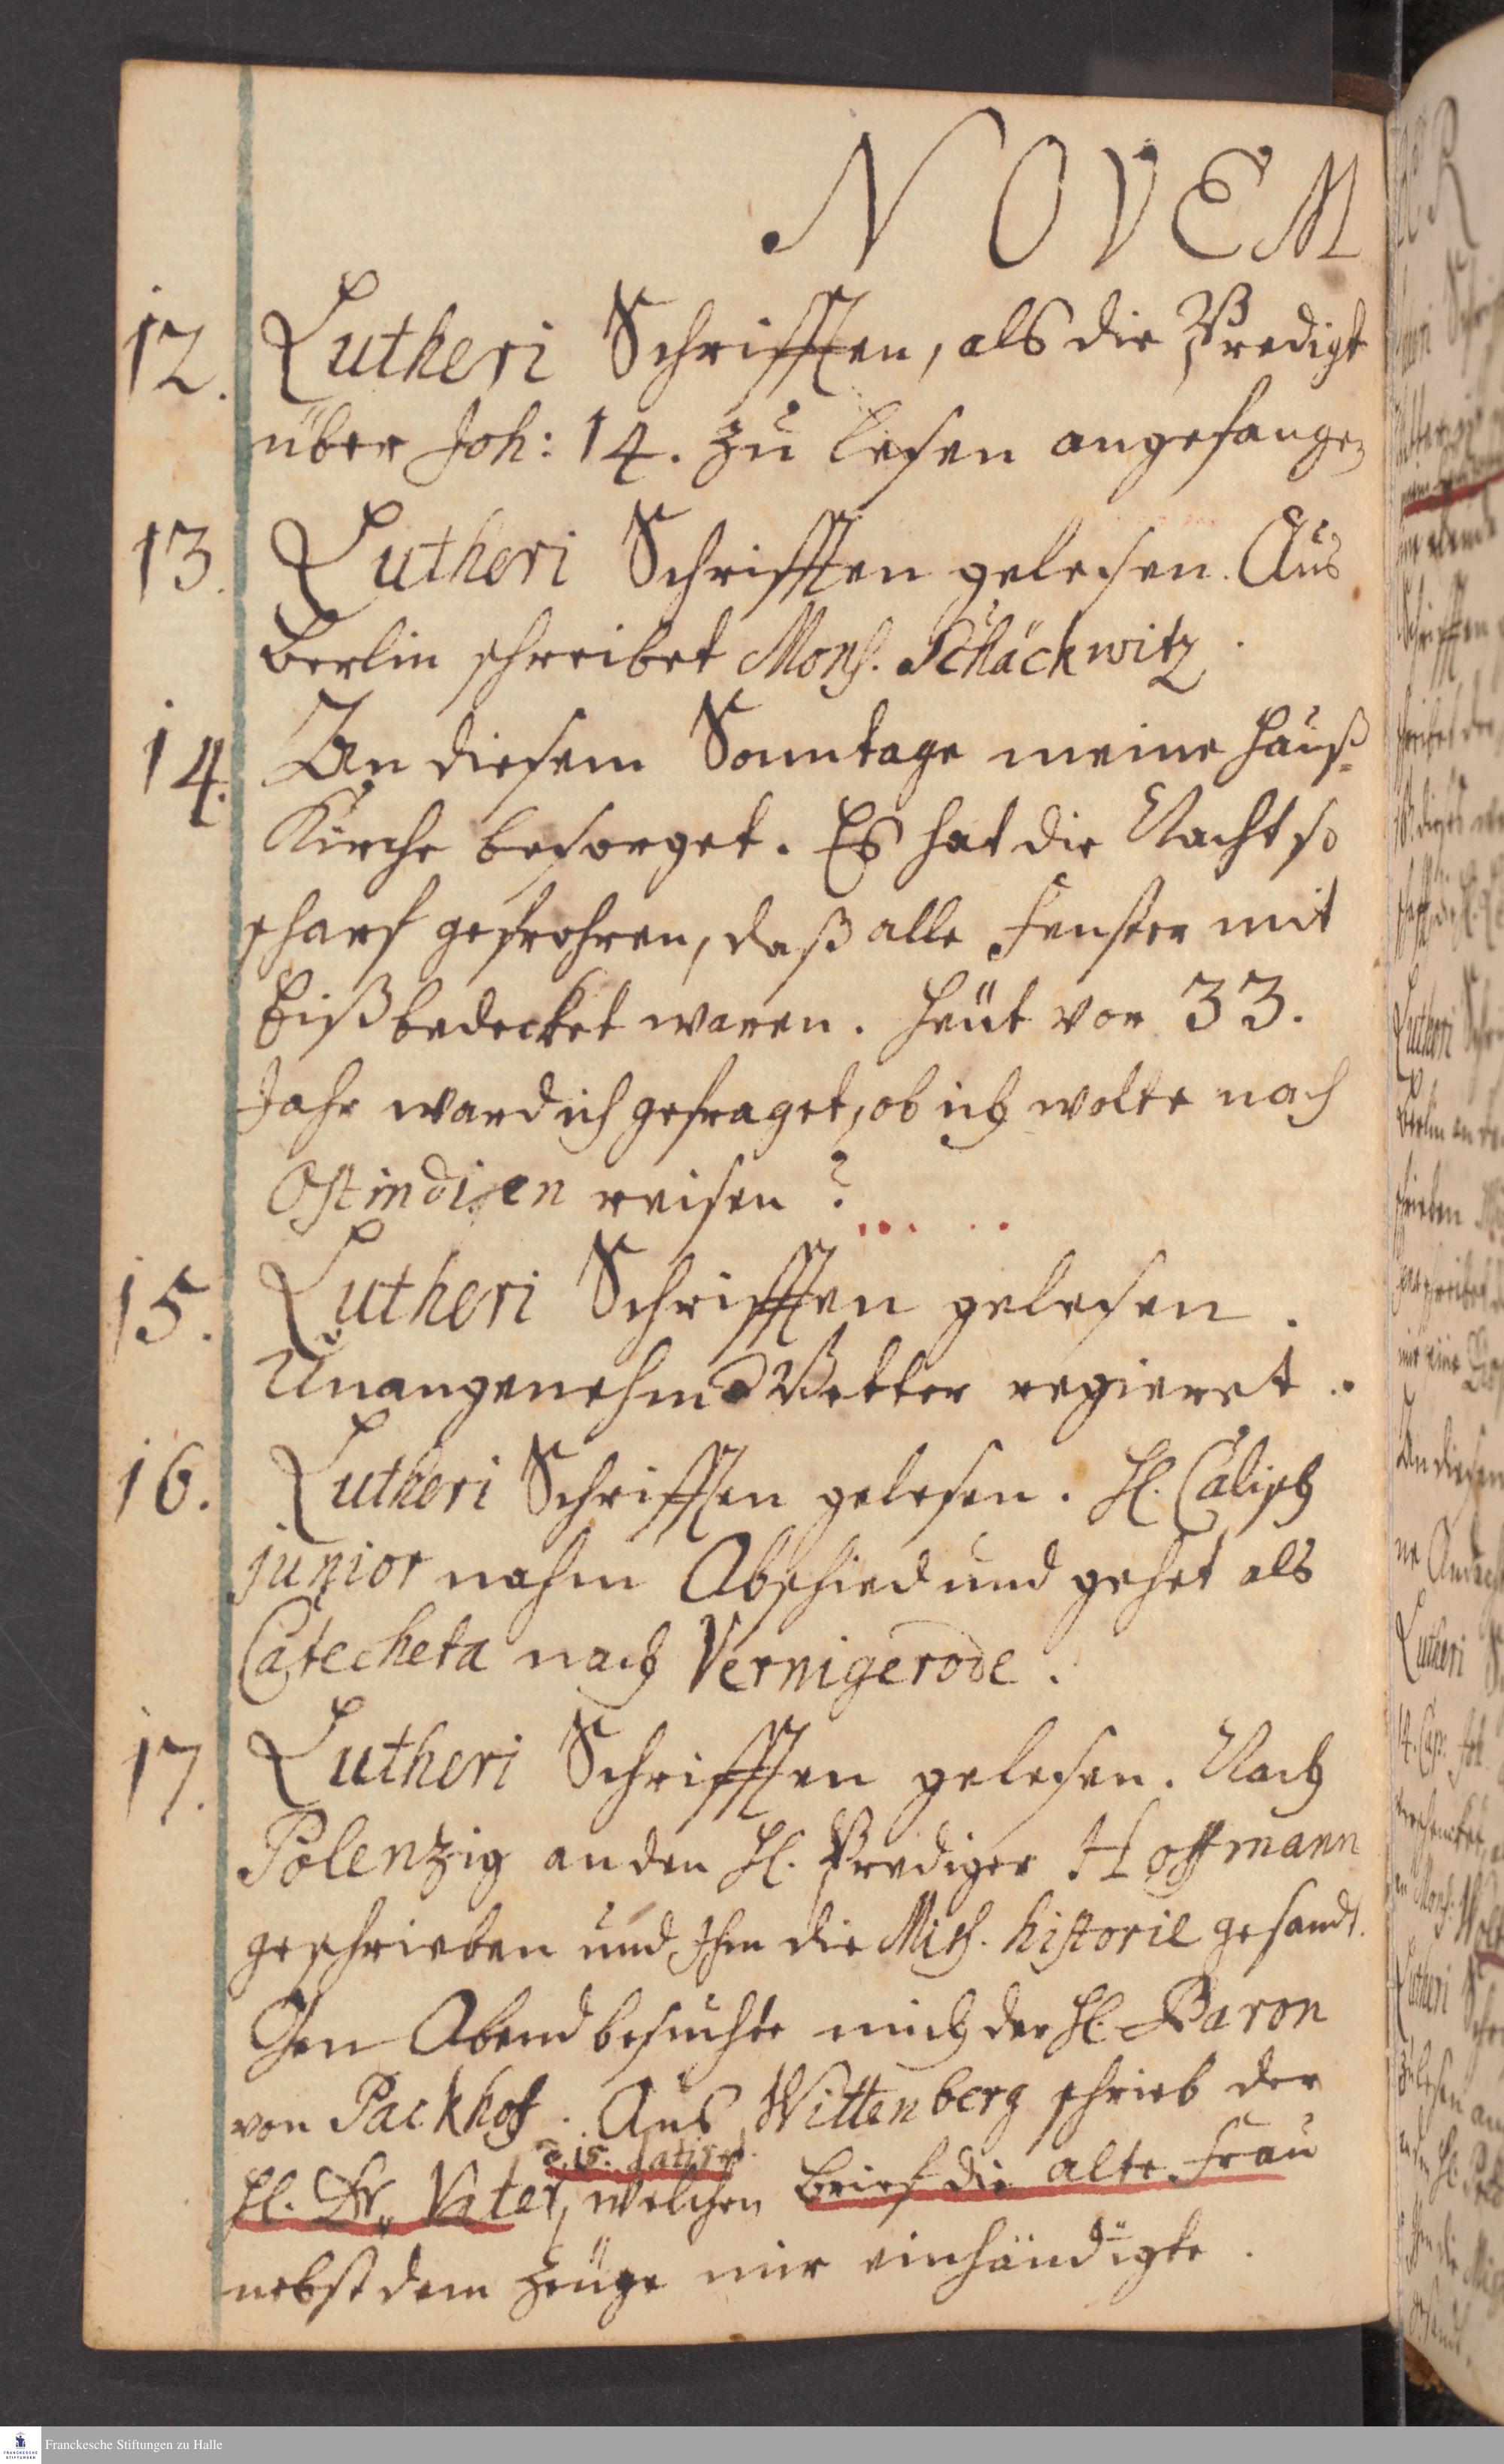 NOVEM
12. Lutheri Schrifften, als die Predigt
über Joh: 14. zu lesen angefangen
13. Lutheri Schrifften gelesen. Aus
Berlin schreibet Mons. Schäckwitz.
14. An diesem Sonntage meine Hauß=
Kirche besorget. Es hat die Nacht so
scharf gefrohren, daß alle Fenster mit
Eiß bedecket waren. Heut vor 33.
Jahr ward ich gefraget, ob ich wolte nach
Ostindien reisen?
15. Lutheri Schrifften gelesen.
Unangenehmes Wetter regieret.
16. Lutheri Schrifften gelesen. H. Calisch
junior nahm Abschied und gehet als
Catecheta nach Vernigerode.
17. Lutheri Schrifften gelesen. Nach
Polenzig an den H. Prediger Hoffmann
geschrieben und Ihm die Miss. historie gesandt.
Gen Abend besuchte mich der H. Baron
von Packhof. Aus Wittenberg schrieb der
d. 15. datiret.
H. Dr. Vater, welchen Brief die alte Frau
nebst dem Zeuge mir einhändigte.
Franckesche Stiftungen zu Halle